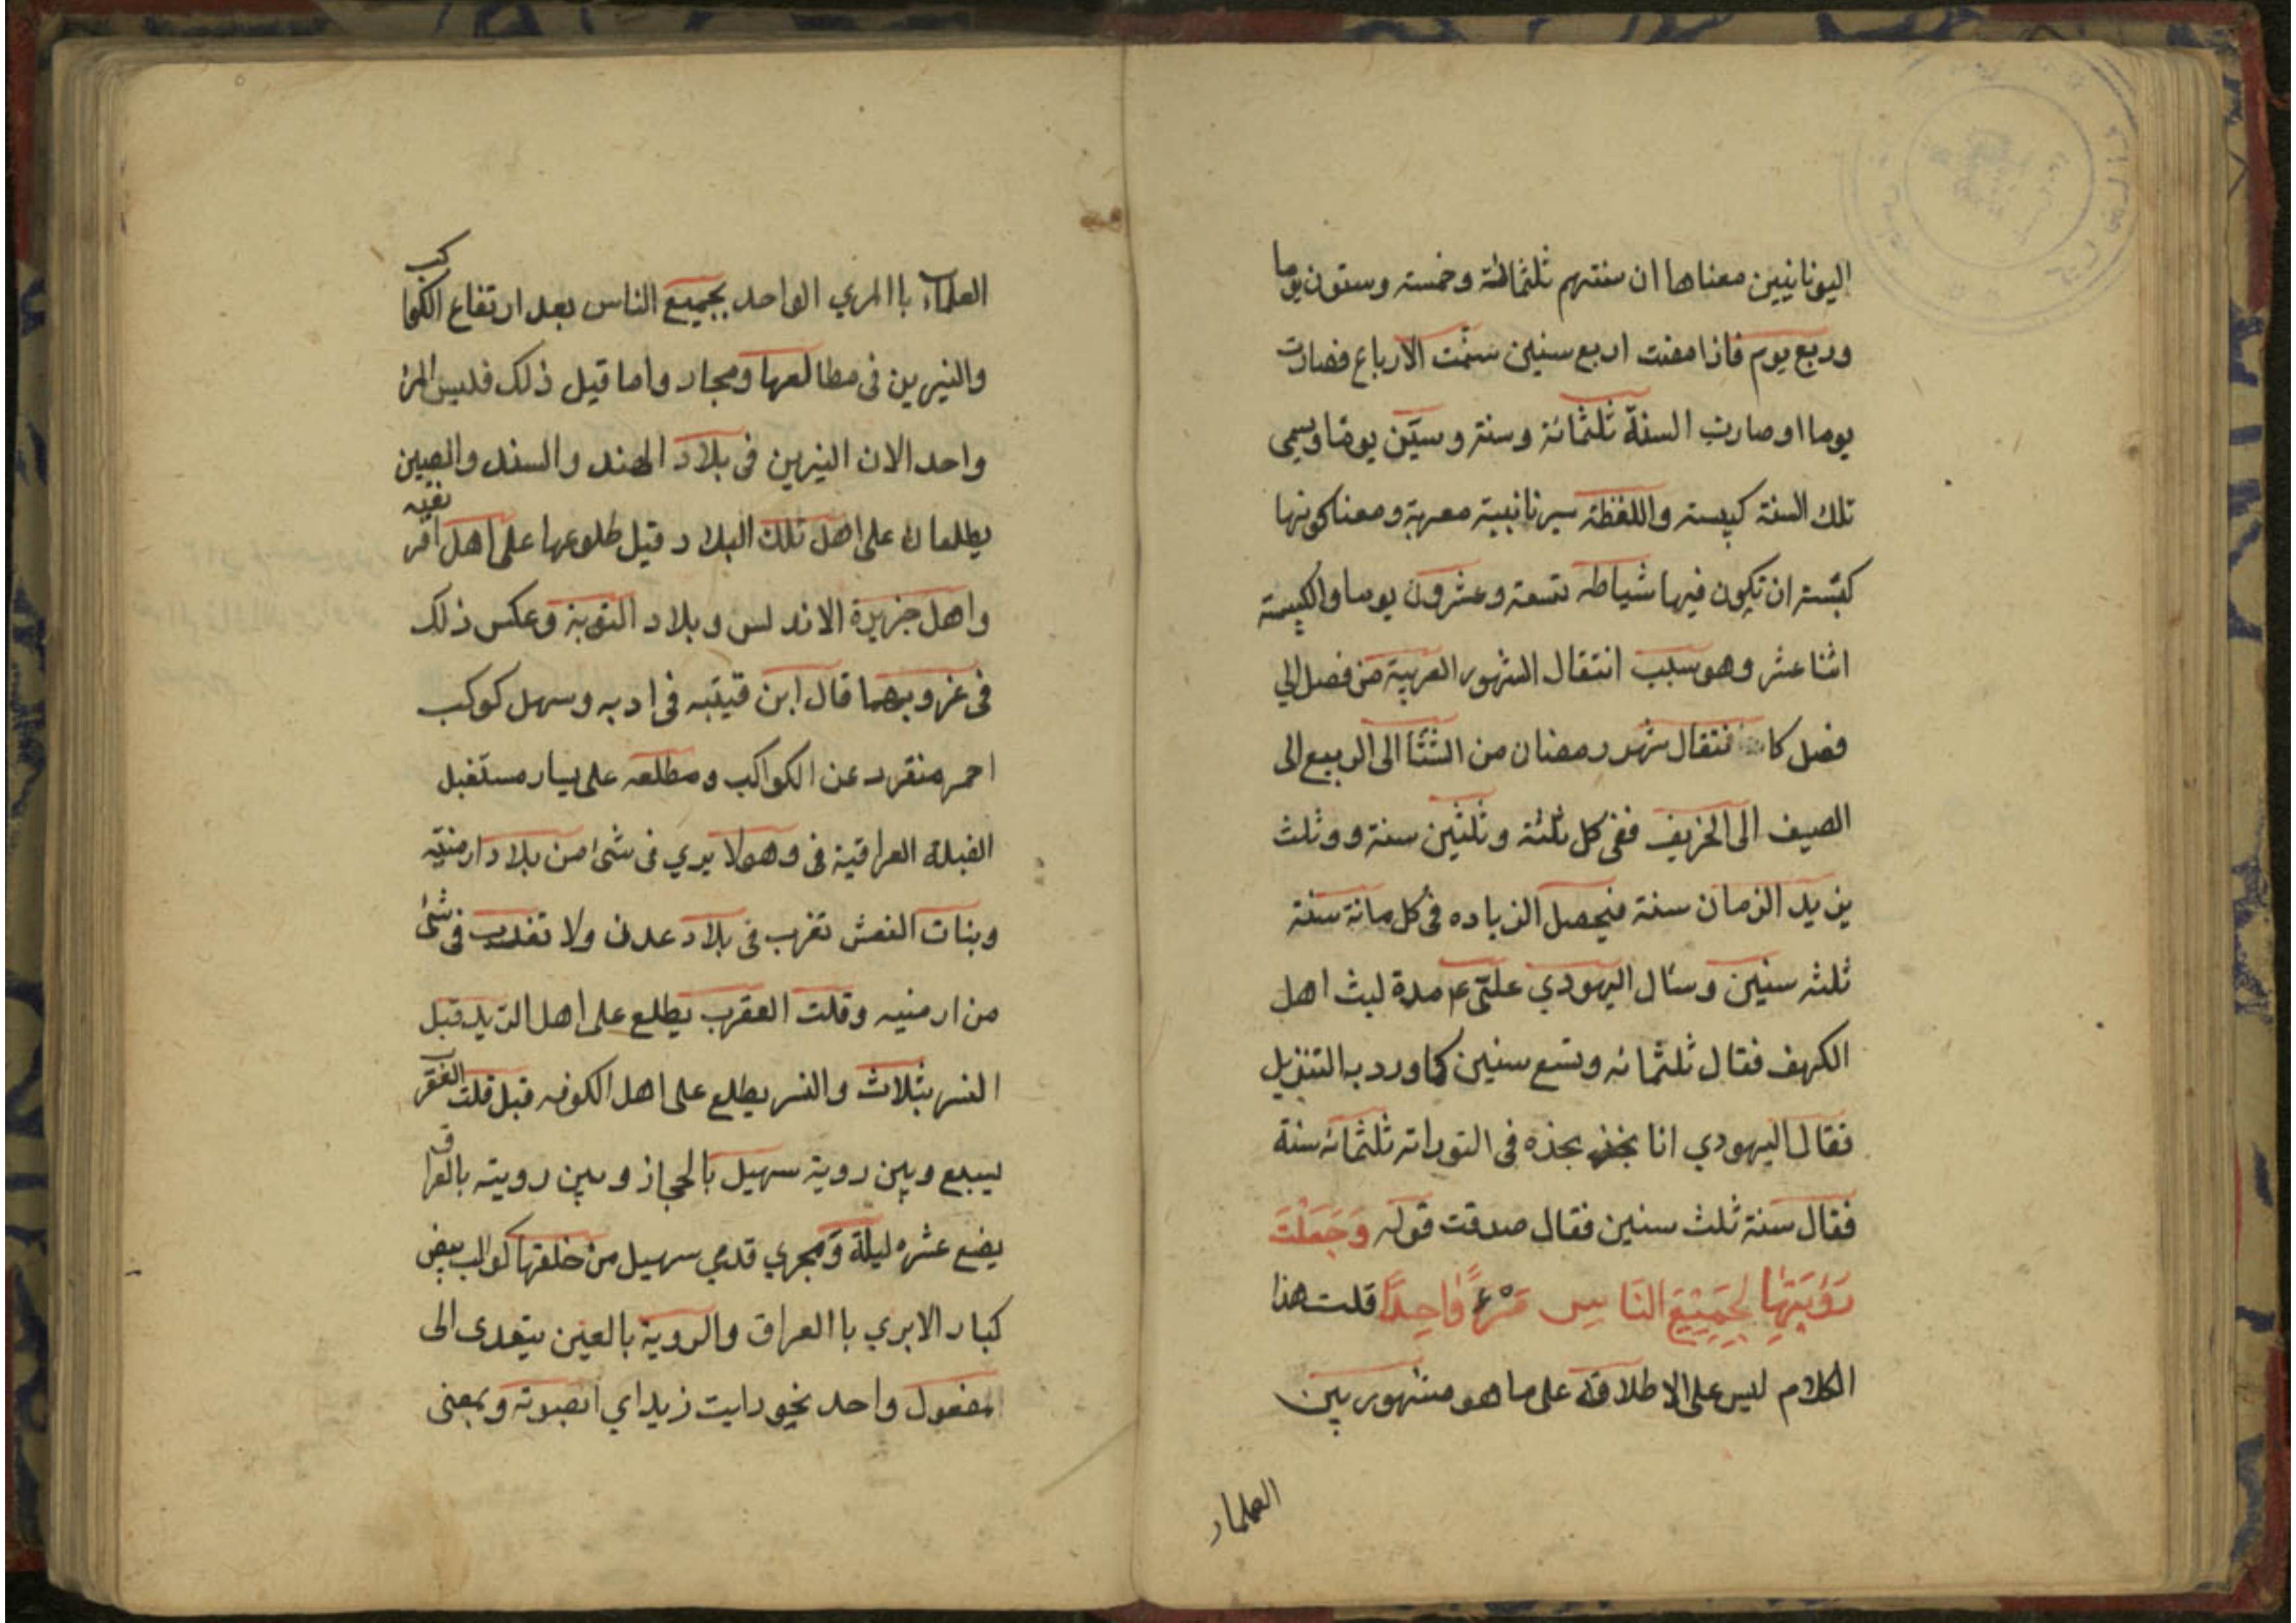 اليونانيين معناها ان سنتهم ثلثمائة وخمسته وستون يوما
وربع يوم فاذا مضت اربع سنين ستمت الارباع فصارت
يوما اوصارت السنة ثلثمائة وستة وستين يوما ويسمى
تلك السنة كبيسته واللفظة سريانية معربة ومعنا كونها
كبيسته ان تكون فيها شباطه تسعة وعشرون يوما والكبيسته
اثنا عشر وهو سبب انتقال الشهور العربية من فصل الي
فصل كا نتقال شهر رمضان من الشتا الى الربيع الى
الصيف الى الخريف ففي كل ثلثة وثلثين سنة و وثلث
يزيد الزمان سنة فيحصل الزياده في كل مائة سنة
ثلثه سنين وسئال اليهودي علي ع مدة لبث اهل
الكهف فقال ثلثمائه وتسع سنين كما ورد به التنزيل
فقال اليهودي انا نجذ بجذه في التوراته ثلثمائه سنة
فقال سنة ثلث سنين فقال صدقت قوله وَجَعَلْتَ
رُؤيَتَها لِجَمِيْعِ النَّاسِ مَرْءًا وَاحِدًا قلت هذا
الكلام ليس على الاطلاقه على ما هو مشهور بين
العلماء
العلماء باالمري الواحد بجميع الناس بعد ارتفاع الكواكب
والنيرين في مطالعها ومجار واما قيل ذلك فليس المرئ
واحد الان النيرين في بلاد الهند والسند والصين
يطلعان على اهل تلك البلاد قبل طلوعها على اهل افريقيه
واهل جزيرة الاندلس وبلاد النوبة وعكس ذلك
في غروبهما قال ابن قيتبه في ادبه وسهل كوكب
احمر منفرد عن الكواكب ومطلعه على يسار مستقبل
القبلة العراقية في وهو لا يري في شئ من بلاد ارمنيه
وبنات النعش تغرب في بلاد عدن ولا تغرب في شئ
من ارمنيه وقلت العقرب يطلع على اهل الزيد قبل
النسر بثلاث والنسر يطلع على اهل الكوفه قبل قلت العقرب
بسبع وبين روية سهيل بالحجاز وبين رويته بالعراق
بضع عشره ليلة ومجري قدمي سهيل من خلفها كواكب بيض
كبار الا يري باالعراق والروية بالعين يتعدى الى
المفعول واحد نحو رايت زيدا اي ابصرته وبمعنى